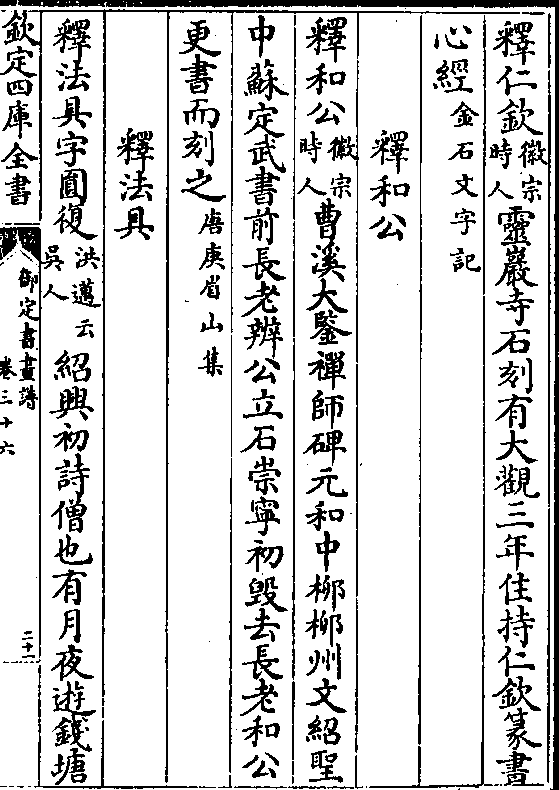 釋仁欽徽宗時人靈巖寺石刻有大觀三年住持仁欽篆書
心經金石文字記
釋和公
釋和公徽宗時人曹溪大鑒禪師碑元和中柳柳州文紹聖
中蘇定武書前長老辨公立石崇寧初毀去長老和公
更書而刻之唐庚眉山集
釋法具
釋法具字圓復洪邁云吳人紹興初詩僧也有月夜遊錢塘
欽定四庫全書
御定書畫譜
卷三十六
二十一